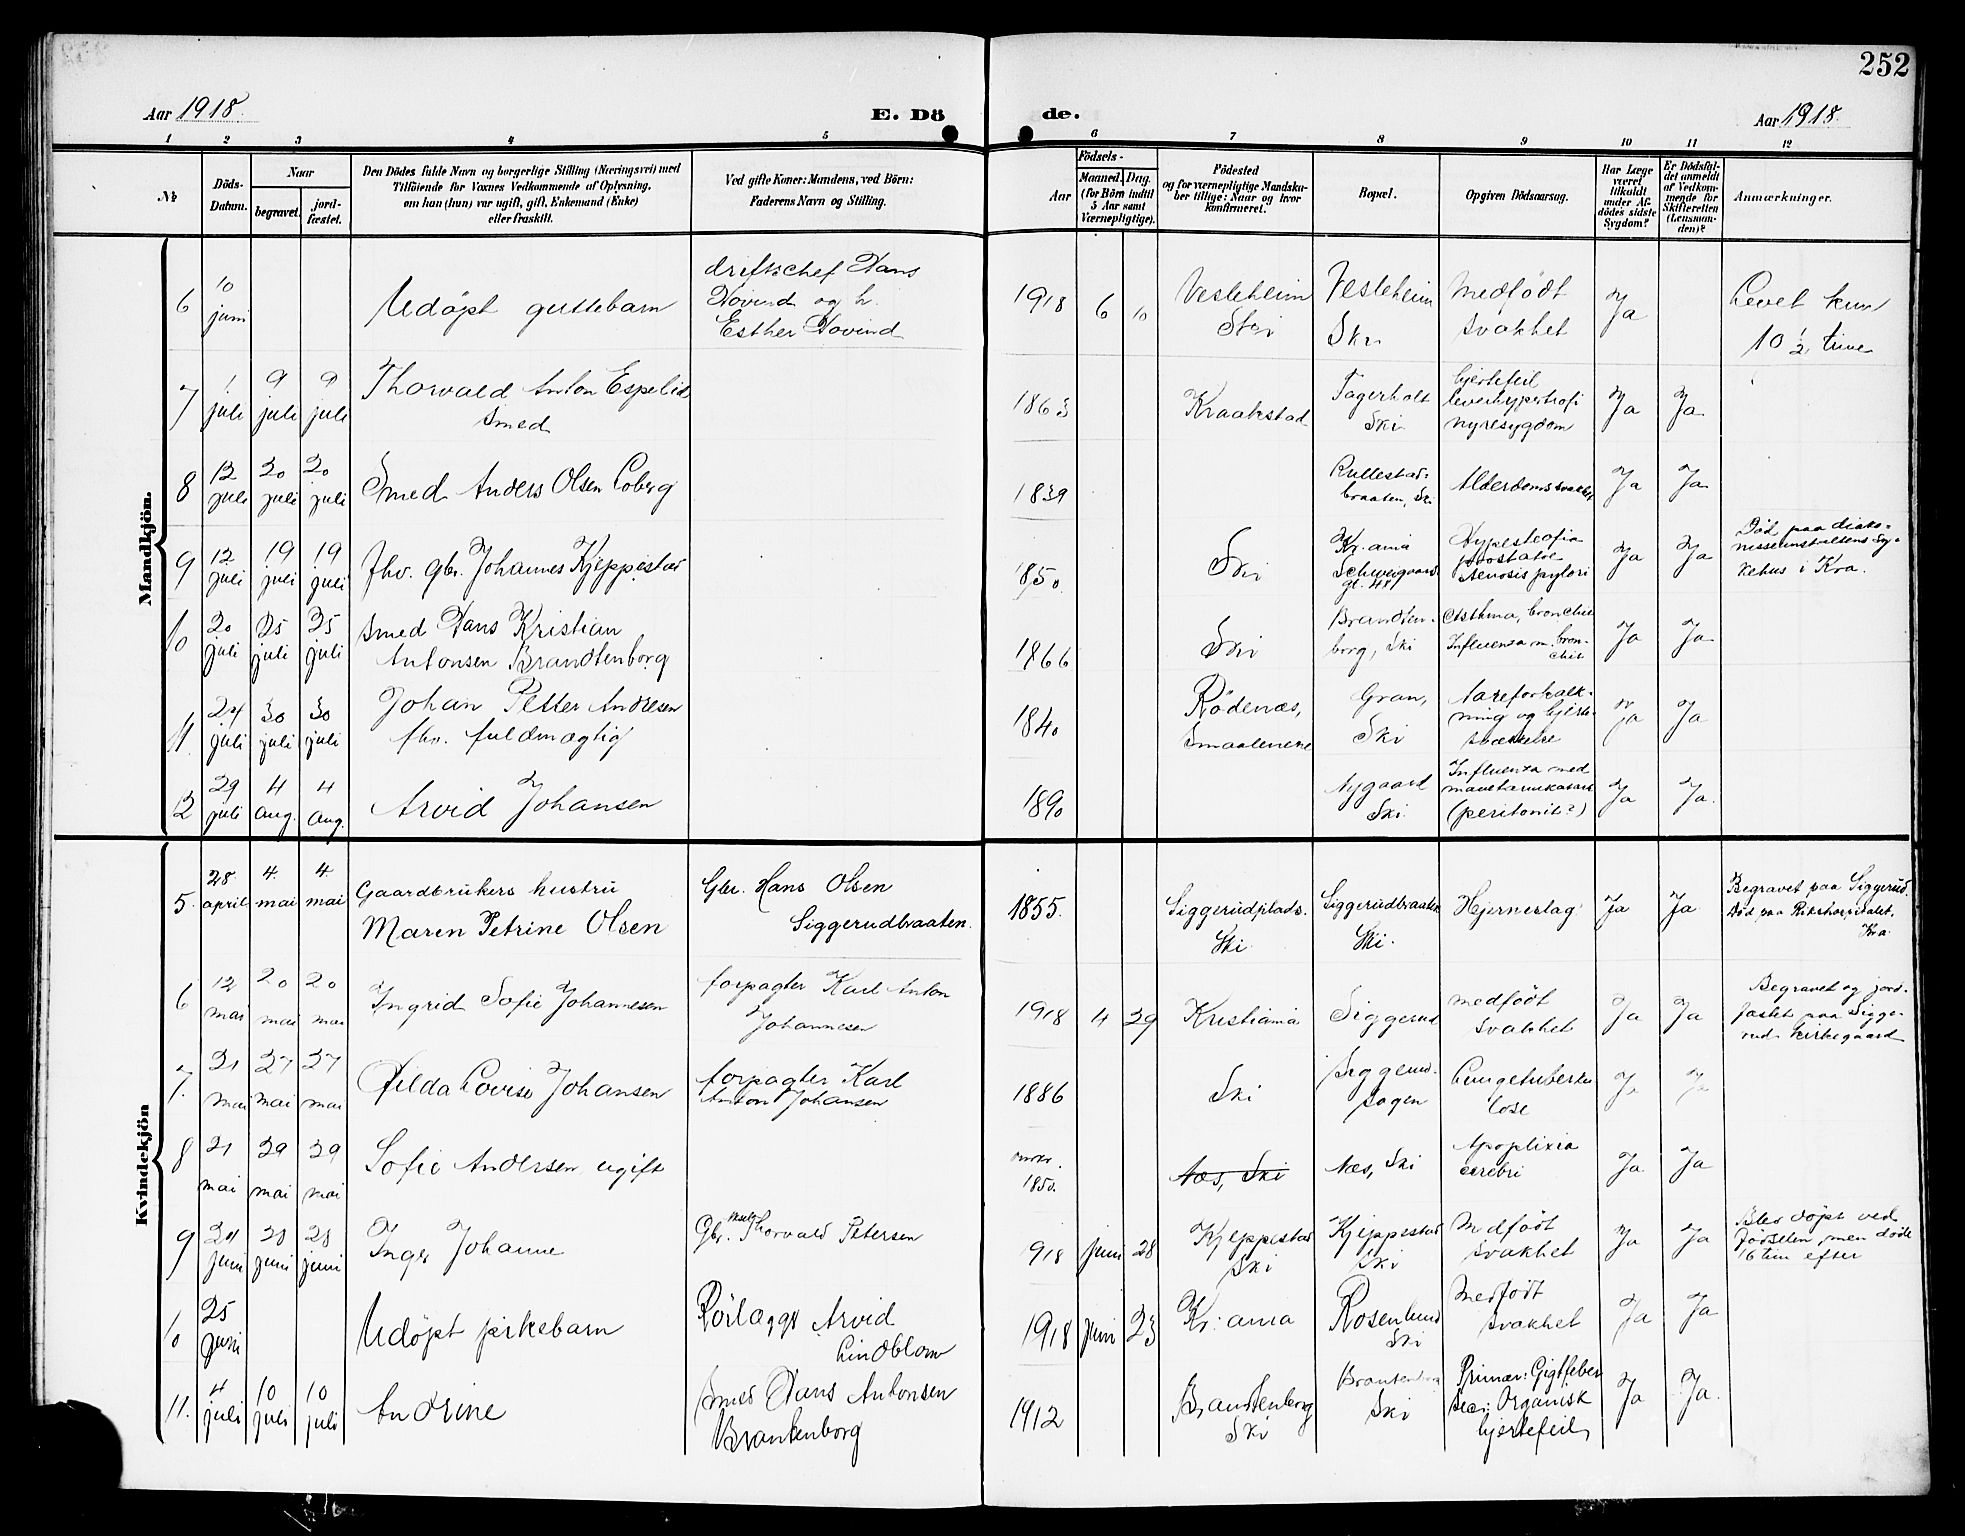 252
Aar 1918.
E. Dö
de.
Aar 1918.
1 2 3 4 5 6 7 8 9 10 11 12
№
Döds-
Datum.
Naar
begravet.
jord-
fæstet.
Den Dödes fulde Navn og borgerlige Stilling (Næringsvei) med
Tilföiende for Voxnes Vedkommende af Oplysning,
om han (hun) var ugift, gift, Enkemand (Enke)
eller fraskilt.
Ved gifte Koner: Mandens, ved Börn:
Faderens Navn og Stilling.
Födsels-
Aar
Maaned. Dag.
(for Börn indtil
5 Aar samt
Værnepligtige).
Födested
og for værnepligtige Mandska-
ber tillige: Naar og hvor
konfirmeret.
Bopæl.
Opgiven Dödsaarsag.
Har Læge
været
tilkaldt
under Af-
dödes sidste
Sygdom?
Er Dödsfal-
det anmeldt
af Vedkom-
mende for
Skifteretten
(Lensman-
den)?
Anmærkninger.
Mandkjön.
6
10
juni
Udöpt guttebarn
driftschef Hans
Hovind og h.
Esther Hovind
1918 6 10
Vesleheim
Ski
Vesleheim
Ski
Medfödt
svakhet
Ja
Levet kun
10 1/2 time
7
1 9 9
juli juli juli
Thorvald Anton Espelid
Smed
1863
Kraakstad
Fagerholt
Ski
hjertefeil
leverhypertrofi
nyresygdom
Ja Ja
8
12 20 20
juli juli juli
Smed Anders Olsen Loberg
1839
Rullestad-
braaten, Ski
Alderdomssvakhet
Ja Ja
9
12 19 19
juli juli juli
Fhv. gbr. Johannes Kjeppestad
1850
Ski
Kr.ania
Schweigaards
gt. 44
Hypertrofia
prostatae
stenosis pylori
Ja Ja
Död paa diako-
nisseanstaltens sy-
kehus i Kra.
10
20 25 25
juli juli juli
Smed Hans Kristian
Antonsen Brandtenborg
1866
Ski
Brandten-
borg, Ski
Asthma, bronchit
Influenza m. bron-
chit
Ja Ja
11
24 30 30
juli juli juli
Johan Petter Andresen
fhv. fuldmægtig
1840
Rödenæs,
Smaalenene
Gran,
Ski
Aareforkalk-
ning og hjerte-
svækkelse
Ja Ja
12
29 4 4
juli aug. aug.
Arvid Johansen
1890
Nygaard
Ski
Influenza med
mavetarmkatarr
(peritonit?)
Ja Ja.
Kvindekjön
5.
28. 4. 4.
april mai mai
Gaardbrukers hustru
Maren Petrine Olsen
Gbr. Hans Olsen
Siggerudbraaten.
1855.
Siggerudplads.
Ski.
Siggerudbraaten
Ski.
Hjerneslag
Ja Ja
Begravet paa Siggerud.
Död paa Rikshospitalet,
Kra.
6
12 20 20
mai mai mai
Ingrid Sofie Johannesen
forpagter Karl Anton
Johannesen
1918 4 29
Kristiania
Siggerud
medfödt
svakhet
Ja Ja
Begravet og jord-
fæstet paa Sigge-
rud kirkegaard
7.
21 27 27
mai mai mai
Hilda Lovise Johansen
forpagter Karl
Anton Johansen
1886
Ski
Siggerud-
sagen
Lungetuberku
lose
Ja Ja
8
21 29 29
mai mai mai
Sofie Andersen, ugift
omkr.
1850.
Næs, Ski
Næs, Ski
Apoplixia
cerebri
Ja Ja
9
24 28 28
juni juni juni
Inger Johanne
Gbr. Thorvald Petersen
918 juni 28
Kjeppestad
Ski
Kjeppestad
Ski
Medfödt
svakhet
Ja Ja
Blev döpt ved
födselen, men döde
16 tim efter
10
25
juni
Udöpt pikebarn
Rörlægger Arvid
Lindblom
1918 juni 23
Kr:ania
Rosenlund
Ski
Medfödt
svakhet
Ja Ja
11.
4 10 10
juli juli juli
Andrine
Smed Hans Antonsen
Brantenborg
1912
Brandtenborg
Ski
Brantenborg
Ski
Primær: Gigtfeber
Sec: Organisk
hjertefeil
Ja Ja.